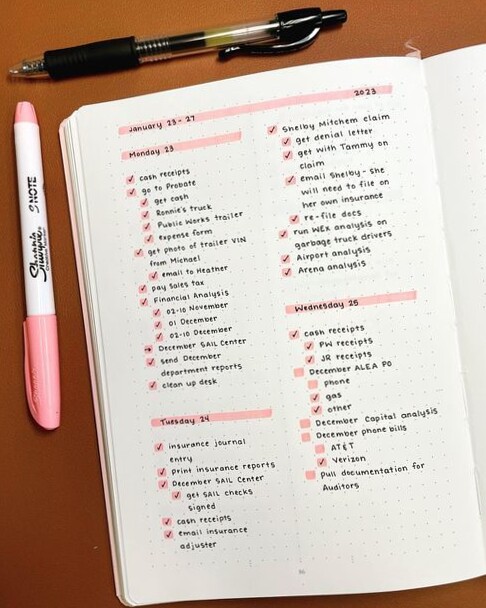 January 23-27
2023
Monday 23
cash receipts
go to Probate
get cash
Ronnie's truck
Public Works trailer
expense form
get photo of trailer VIN
from Michael
email to Heather
pay sales tax
Financial Analysis
02-10 November
01 December
02-10 December
December SAIL Center
send December
department reports
clean up desk
Tuesday 24
insurance journal
entry
print insurance reports
December SAIL Center
get SAIL checks
signed
cash receipts
email insurance
adjuster
Shelby Mitchem claim
get denial letter
get with Tammy on
claim
email Shelby - she
will need to file on
her own insurance
re-file docs
run WEX analysis on
garbage truck drivers
Airport analysis
Arena analysis
Wednesday 25
cash receipts
PW receipts
JR receipts
December ALEA PO
phone
gas
other
December Capital analysis
December phone bills
AT&T
Verizon
pull documentation for
Auditors
S·NOTE
Sharpie